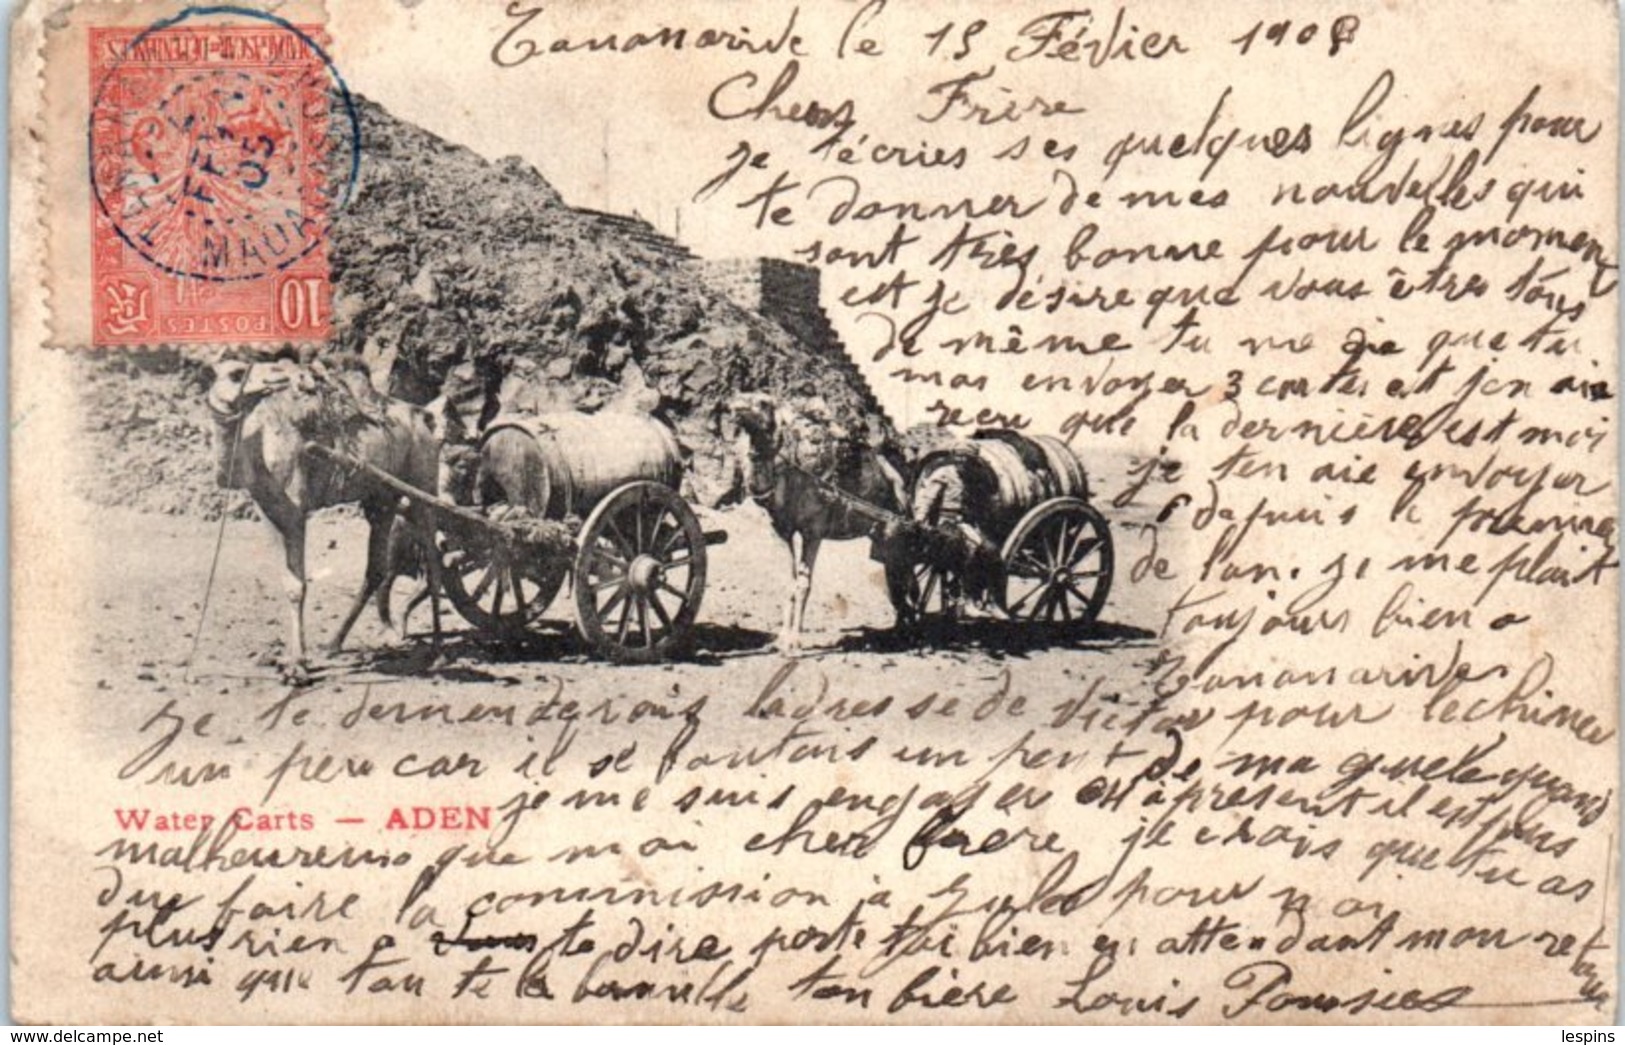 Tananarive le 15 Février 1905
Chers Frère
je técries ses quelques lignes pour
te donner de mes nouvelles qui
sont très bonne pour le moment
est je désire que vous êtres tous
de même tu me die que tu
mas envoyer 3 cartes est jen aie
recu que la dernière est moi
je ten aie envoyer
6 depuis le premier
de lan. je me plait
toujours bien a
Tananarive
je te demenderais ladresse de Victor pour lechiner
un peu car il se foutais un peut de ma guele quand
Water Carts — ADEN
je me suis engager est àprésent il est plus
malheureus que moi cher frère je crois que tu as
du faire la commission à Jules pour moi
plus rien a te dire porte toi bien en attendant mon retour
ainsi que tou te la famille ton frère Louis
MADAGASCAR ET DÉPENDANCES
POSTES
10
RF
TANANARIVE
FEVR
05
MADAGASCAR
lespins